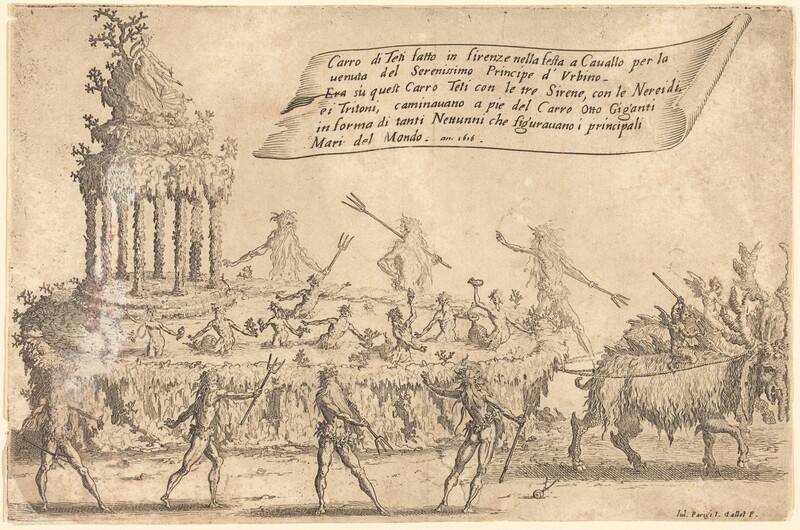 Carro di Teti fatto in firenze nella festa a Cauallo per la
uenuta del Serenissimo Principe d' Vrbino.
Era sù quest Carro Teti con le tre Sirene, con le Nereidi,
e i Tritoni, caminauano a pie del Carro Otto Giganti
in forma di tanti Nettunni che figurauano i principali
Mari del Mondo. an. 1616.
Iul. Parigi I. Callot F.